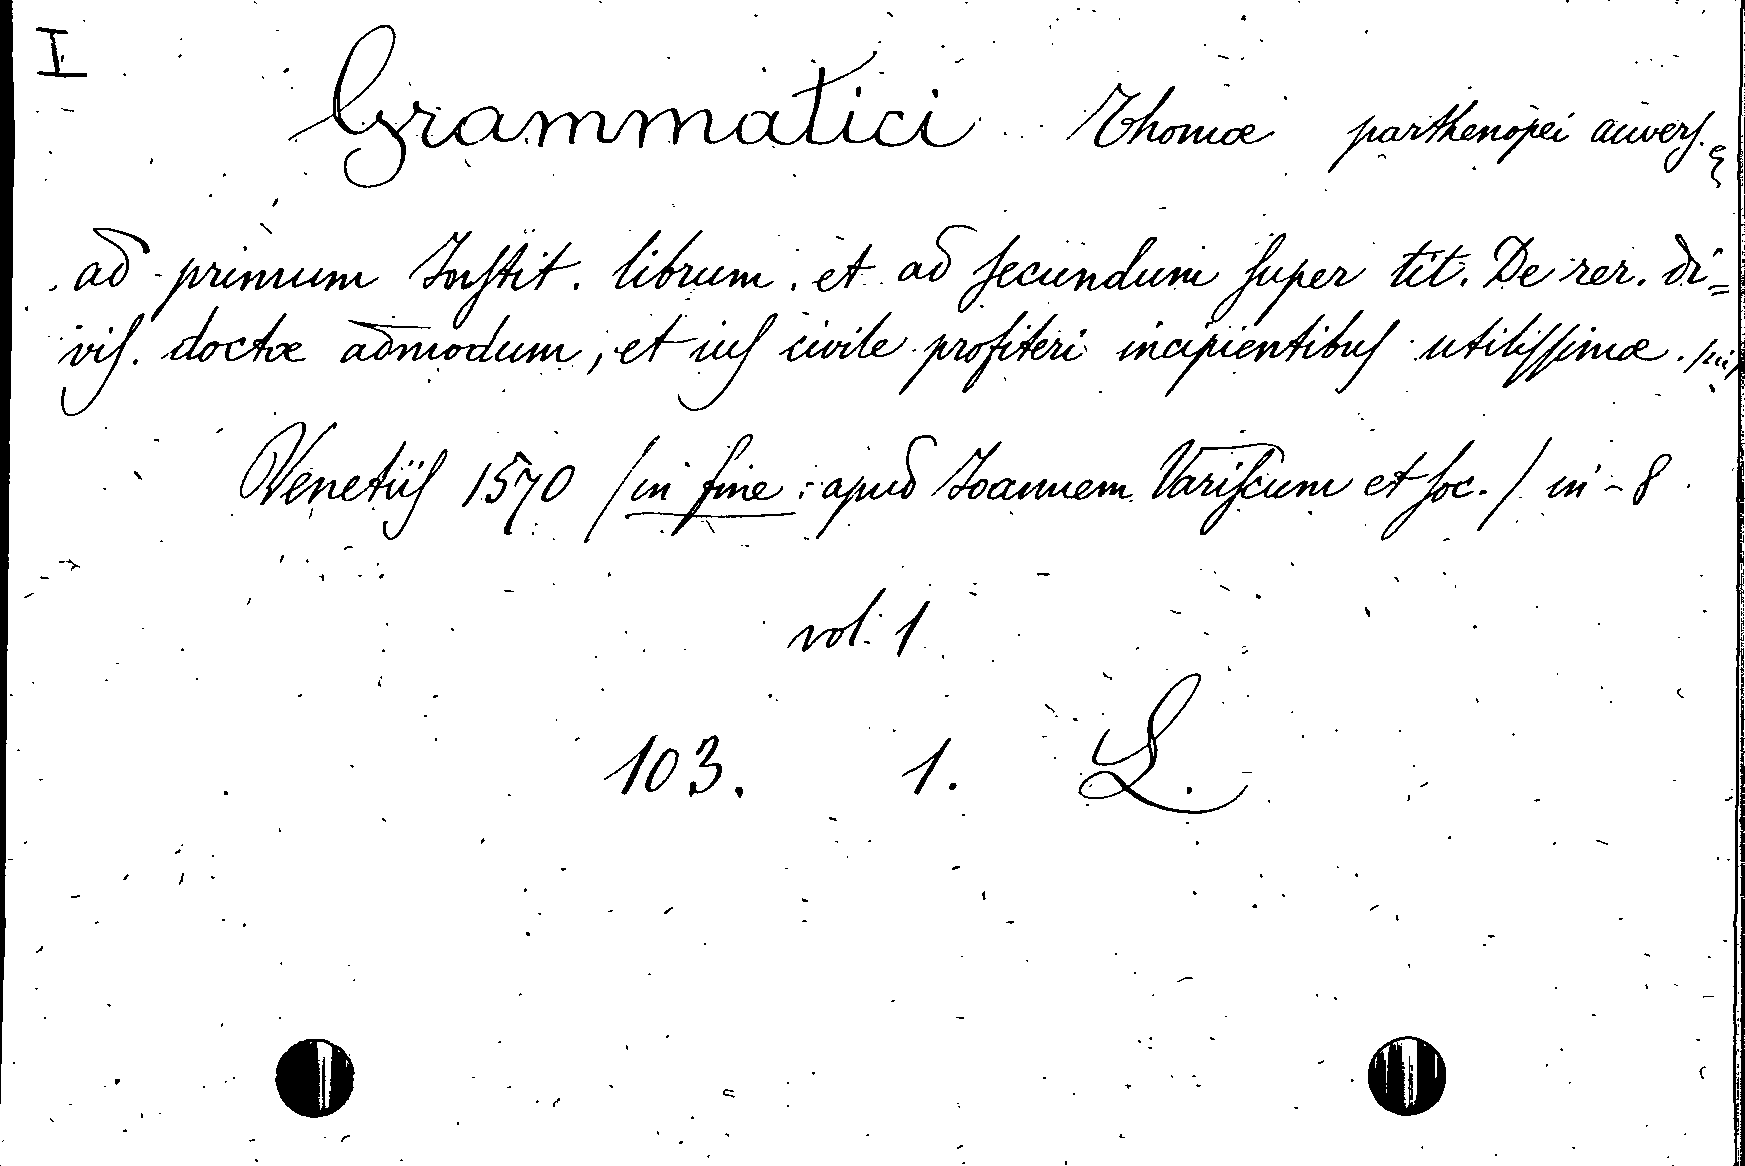 I
Grammatici Thomæ parthenopei auvers.
ad primum Instit. librum. et ad secundum super tit. De rer. di=
vis. doctæ admodum, et ius civile profiteri incipientibus utilissimæ.
Venetiis 1570 / in fine : apud Ioannem Variscum et soc. / in-8
vol. 1
103. 1. L.